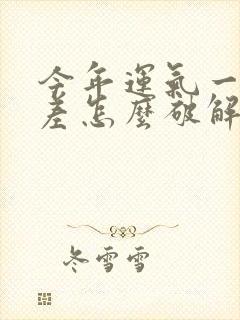 今年運氣一
差怎麼破解
冬雪雪